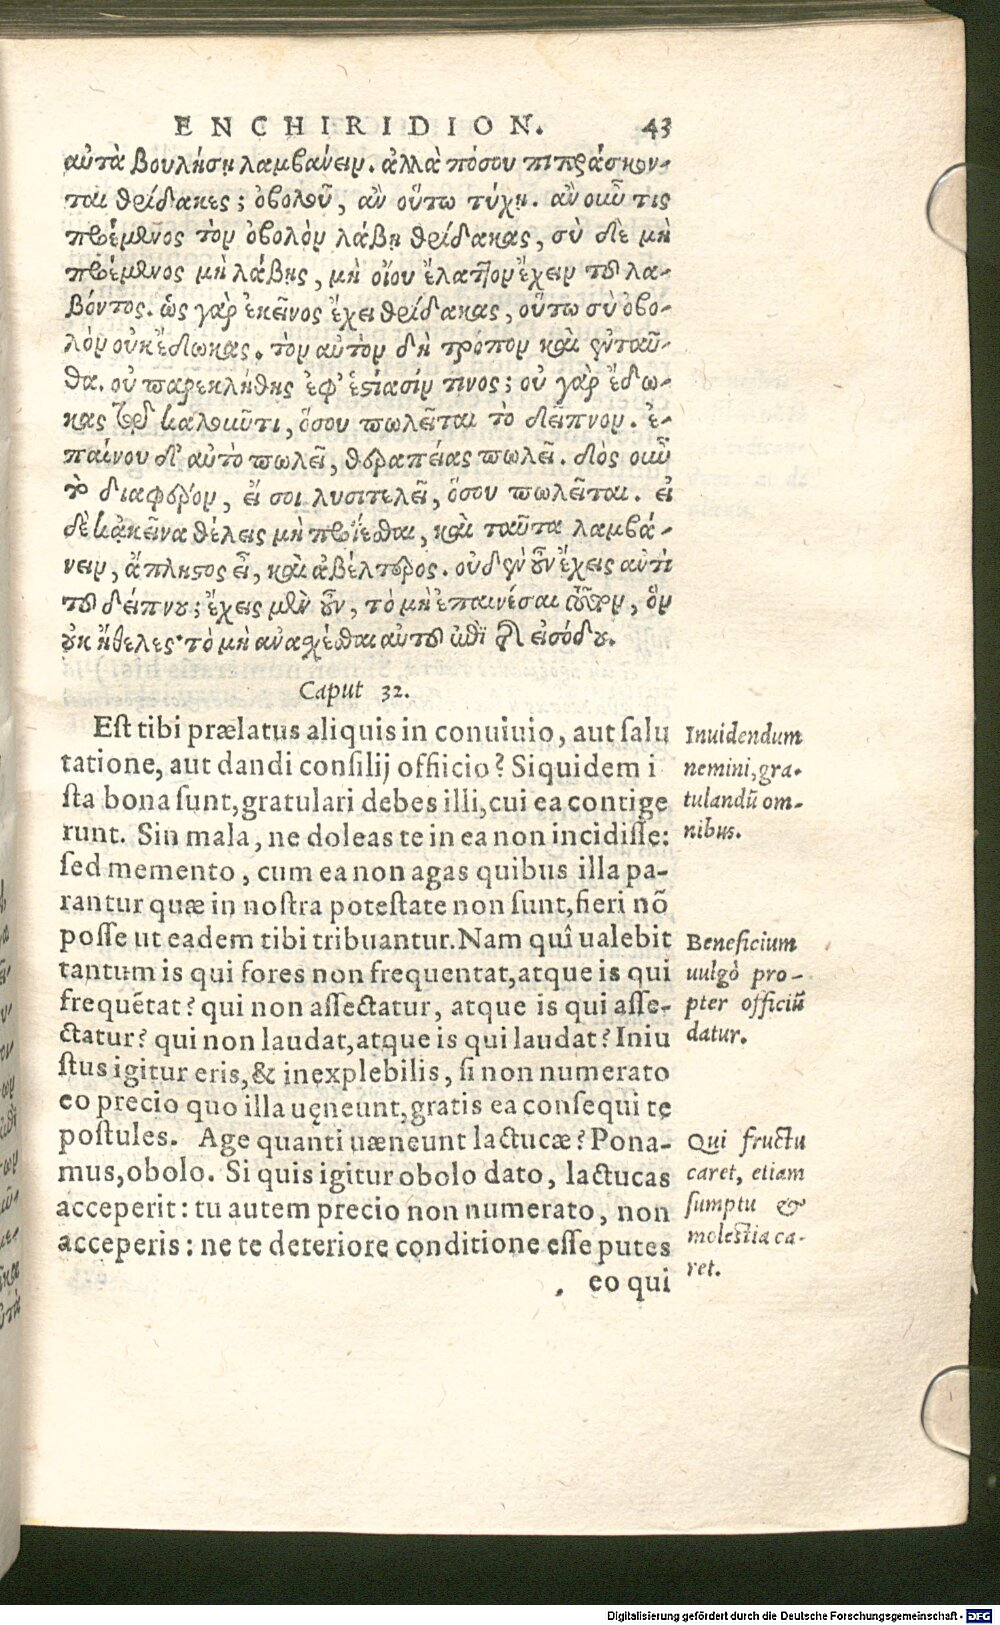 ENCHIRIDION. 43
αὐτὰ βουλήσῃ λαμβάνειν. ἀλλὰ πόσου πιπράσκον-
ται θρίδακες; ὀβολοῦ, ἂν οὕτω τύχῃ. ἂν οὖν τις
προέμενος τὸν ὀβολὸν λάβῃ θρίδακας, σὺ δὲ μὴ
προέμενος μὴ λάβῃς, μὴ οἴου ἔλαττον ἔχειν τοῦ λα-
βόντος. ὡς γὰρ ἐκεῖνος ἔχει θρίδακας, οὕτω σὺ ὀβο-
λὸν οὐκ ἔδωκας. τὸν αὐτὸν δὴ τρόπον καὶ ἐνταῦ-
θα. οὐ παρεκλήθης ἐφ' ἑστίασίν τινος; οὐ γὰρ ἔδω-
κας τῷ καλοῦντι, ὅσου πωλεῖται τὸ δεῖπνον. ἐ-
παίνου δ' αὐτὸ πωλεῖ, θεραπείας πωλεῖ. δὸς οὖν
τὸ διαφέρον, εἴ σοι λυσιτελεῖ, ὅσου πωλεῖται. εἰ
δὲ κἀκεῖνα θέλεις μὴ προΐεσθαι, καὶ ταῦτα λαμβά-
νειν, ἄπληστος εἶ, καὶ ἀβέλτερος. οὐδὲν οὖν ἔχεις ἀντὶ
τοῦ δείπνου; ἔχεις μὲν οὖν, τὸ μὴ ἐπαινέσαι τοῦτον, ὃν
οὐκ ἤθελες· τὸ μὴ ἀνασχέσθαι αὐτοῦ ἐπὶ τῆς εἰσόδου.
Caput 32.
Est tibi prælatus aliquis in conuiuio, aut salu
tatione, aut dandi consilij officio? Siquidem i
sta bona sunt, gratulari debes illi, cui ea contige
runt. Sin mala, ne doleas te in ea non incidisse:
sed memento, cum ea non agas quibus illa pa-
rantur quæ in nostra potestate non sunt, fieri nõ
posse ut eadem tibi tribuantur. Nam quî ualebit
tantum is qui fores non frequentat, atque is qui
frequẽtat? qui non assectatur, atque is qui asse-
ctatur? qui non laudat, atque is qui laudat? Iniu
stus igitur eris, & inexplebilis, si non numerato
eo precio quo illa uęneunt, gratis ea consequi te
postules. Age quanti uæneunt lactucæ? Pona-
mus, obolo. Si quis igitur obolo dato, lactucas
acceperit: tu autem precio non numerato, non
acceperis: ne te deteriore conditione esse putes
eo qui
Inuidendum
nemini, gra-
tulandũ om-
nibus.
Beneficium
uulgò pro-
pter officiũ
datur.
Qui fructu
caret, etiam
sumptu &
molestia ca-
ret.
Digitalisierung gefördert durch die Deutsche Forschungsgemeinschaft - DFG